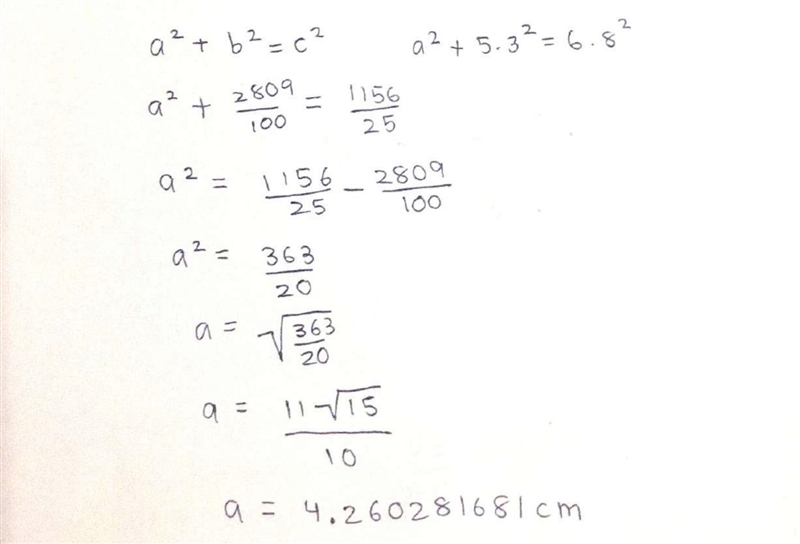 a² + b² = c² a² + 5.3² = 6.8²
a² + 2809/100 = 1156/25
a² = 1156/25 − 2809/100
a² = 363/20
a = √(363/20)
a = 11√15/10
a = 4.260281681 cm